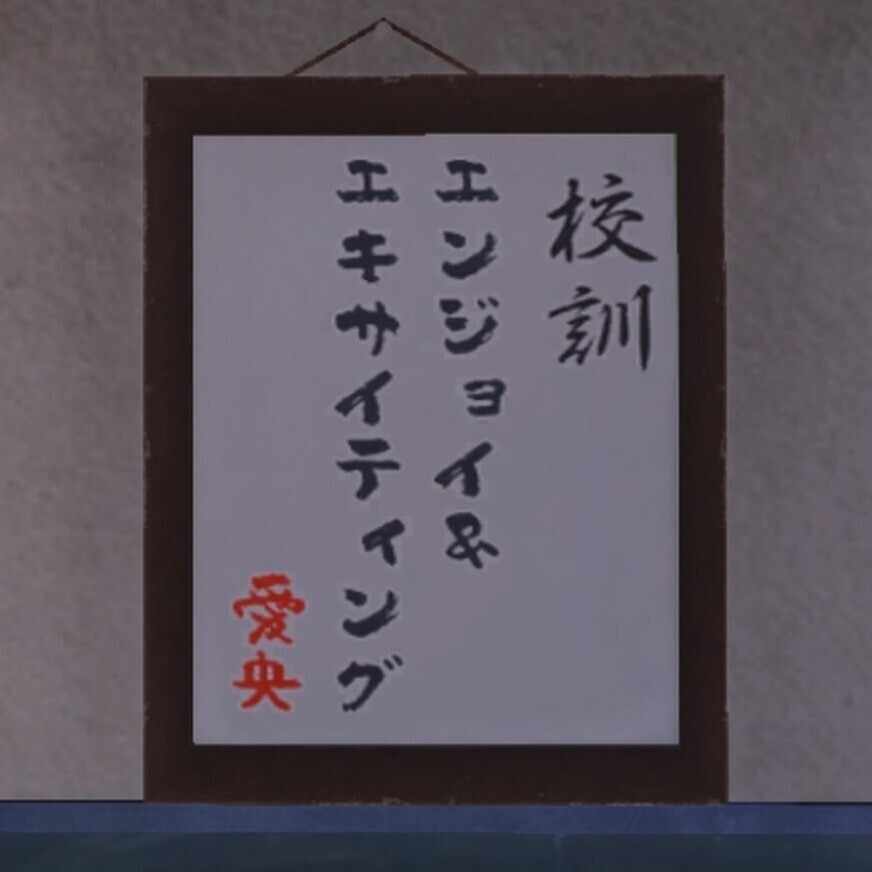 校訓
エンジョイ&
エキサイティング
愛央